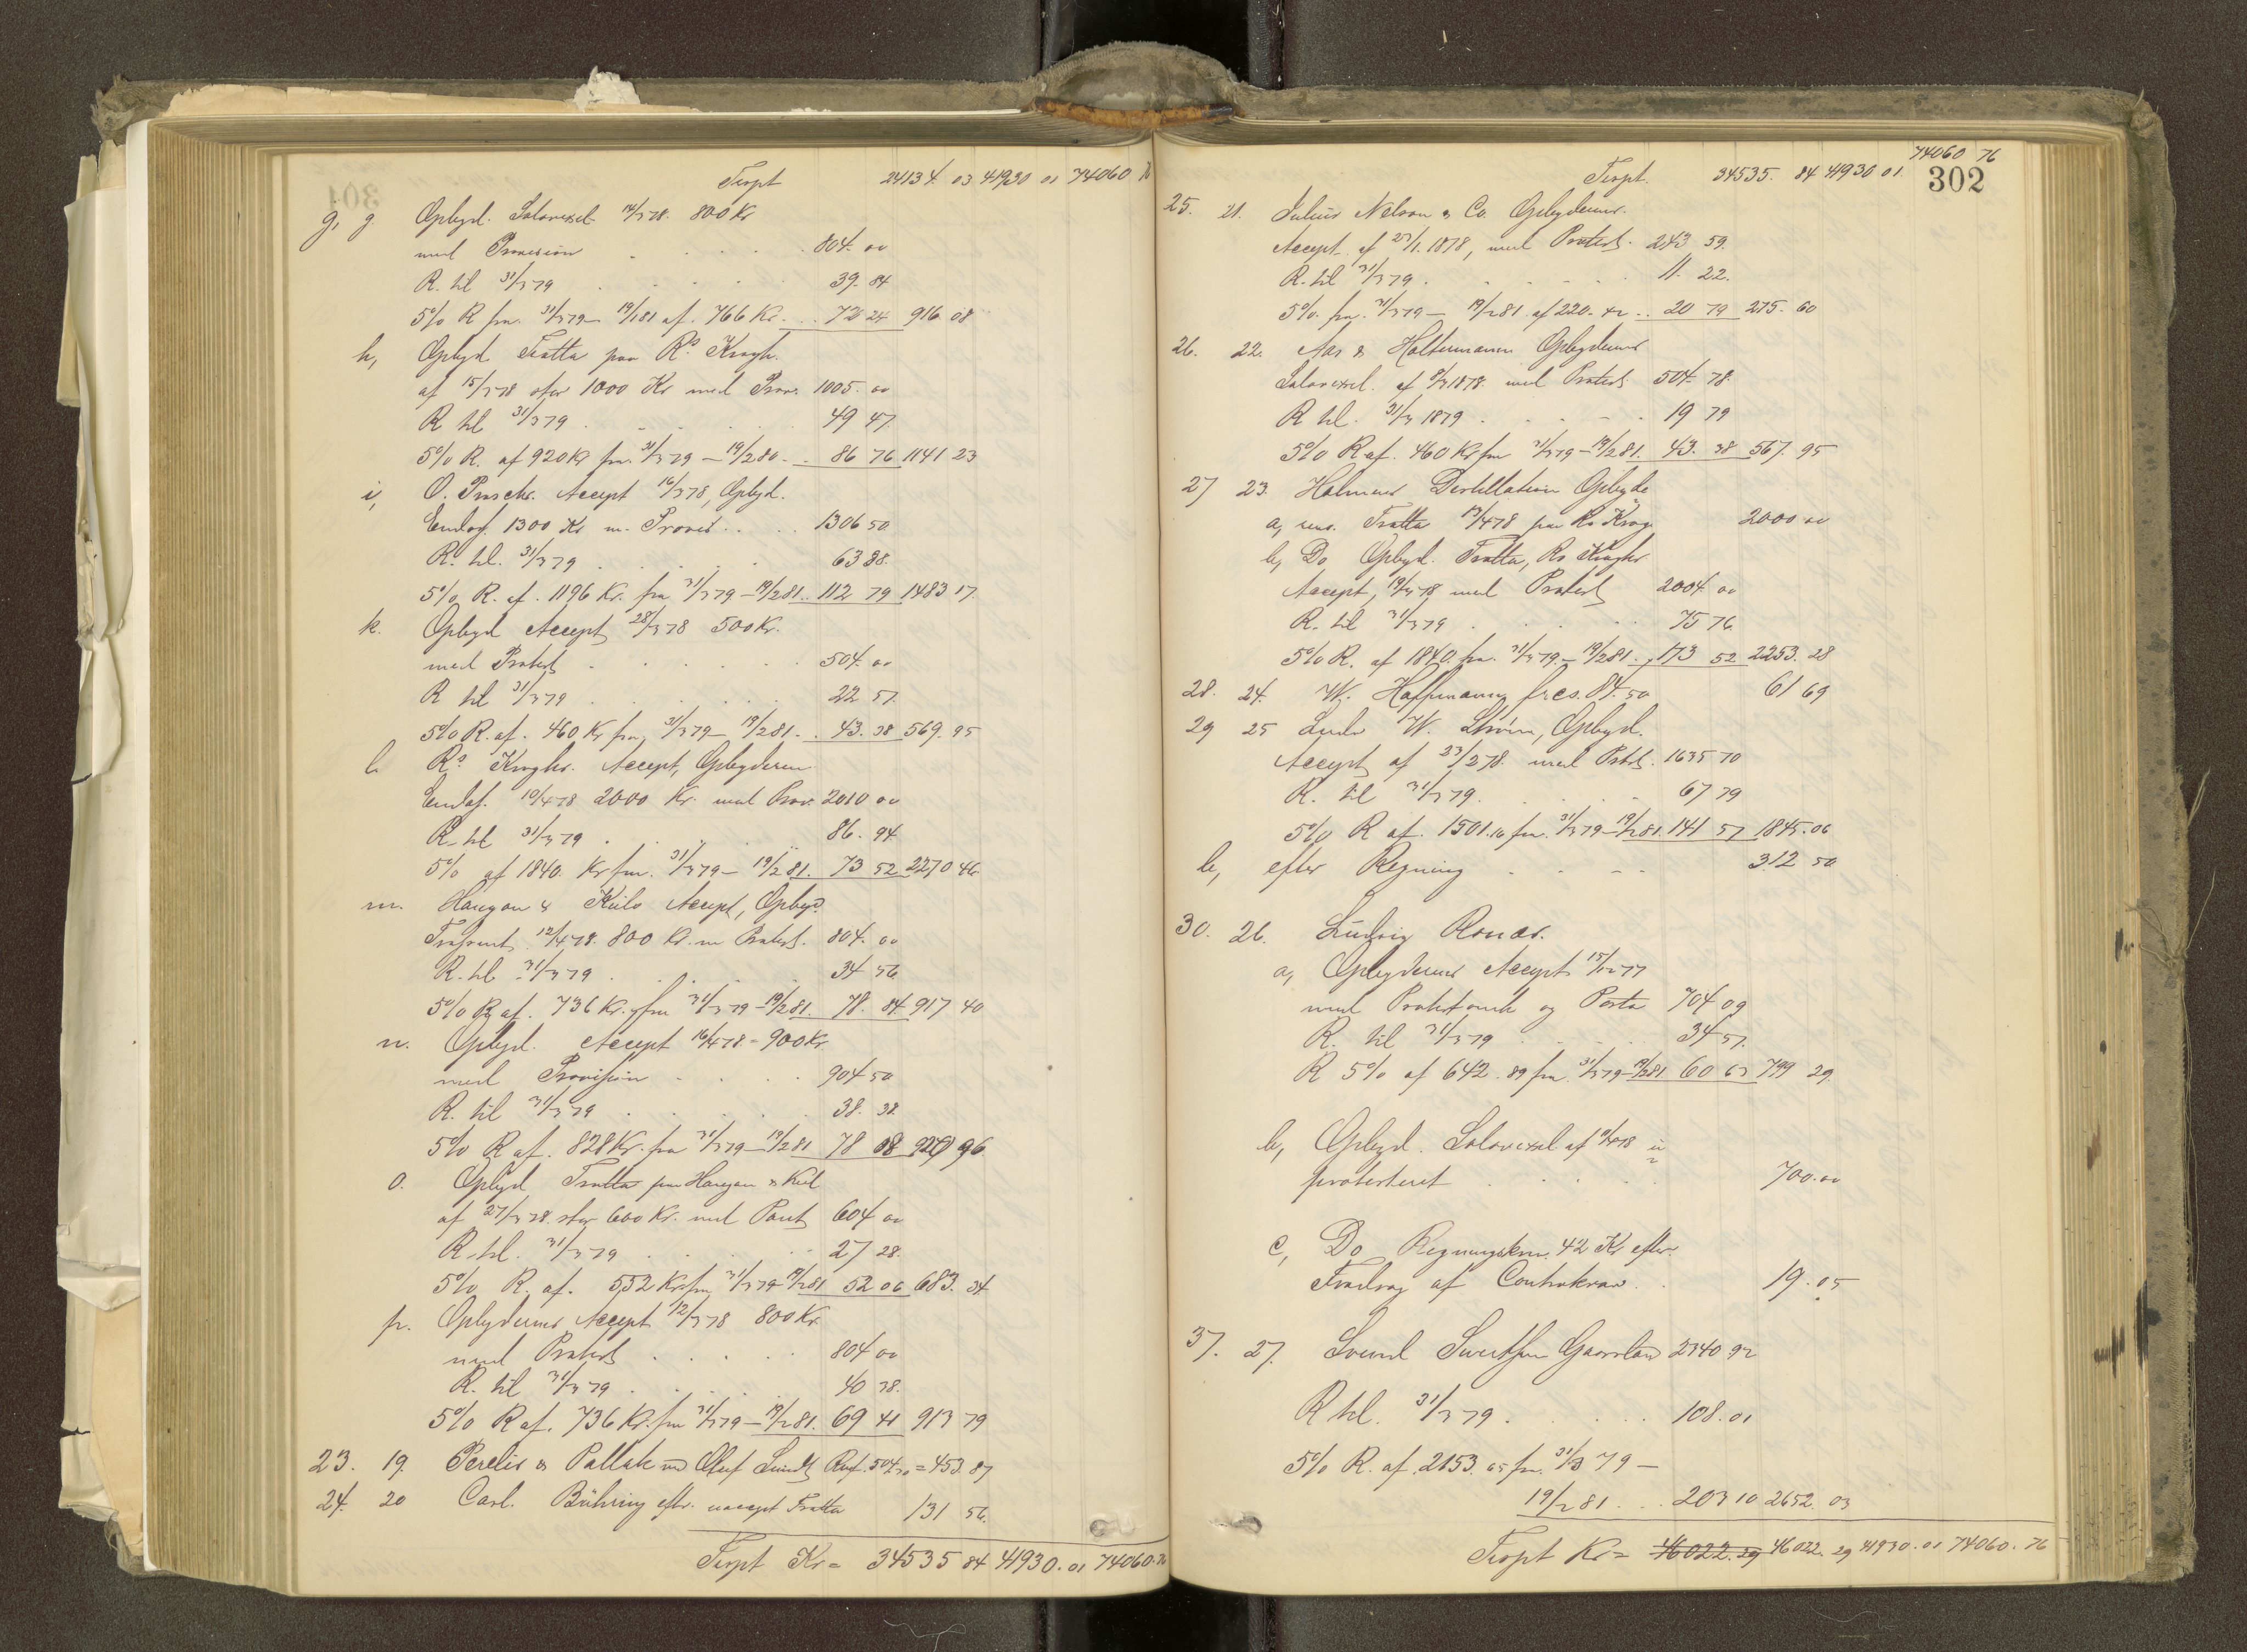 Trspt 24134. 03 41930 01 74060 76
g, g Opbyd. Solavexel 14/3 78. 800 Kr
med Provision . . . . 804. 00
R. til 31/3 79 . . . . 39. 84
5% R fra 31/3 79 – 19/2 81 af. 766 Kr. . . 72 24 916 08
h, Opbyd Tratta paa Rs. Krogh.
af 15/3 78 stor 1000 Kr med Prov. 1005. 00
R til 31/3 79 . . . . 49 47.
5% R. af 920 Kr fra. 31/3 79 – 19/2 80 . . 86 76 1141 23
i, O. Accept 16/3 78, Opbyd.
Endos. 1300 Kr m. Provis. . . . 1306 50
R. til. 31/3 79 . . . . 63 88.
5% R. af. 1196 Kr. fra 31/3 79 – 19/2 81. . 112 79 1483 17.
k. Opbyd Accept 28/3 78 500 Kr.
med Protest . . . . 504. 00
R til 31/3 79 . . . . 22 57.
5% R. af. 460 Kr fra 31/3 79 – 19/2 81 . . 43. 38 569. 95
l. Rs Kroghs. Accept, Opbyderen
Endos. 10/4 78 2000 Kr. med Prov. 2010 00
R. til 31/3 79 . . . . 86. 94
5% af 1840. Kr fra. 31/3 79 – 19/2 81. 73 52 2270 46.
m. Hansson & Accept, Opbyd.
12/4 78. 800 Kr. m Protest. 804. 00
R. til 31/3 79 . . . . 34 56
5% R af. 736 Kr. fra 31/3 79 – 19/2 81. 78. 84 917 40
n. Opbyd. Accept 16/4 78 – 900 Kr
med Provision . . . . 904 50
R. til 31/3 79 . . . . 38. 38.
5% R af. 828 Kr. fra 31/3 79 – 19/2 81 78 08 96
o. Opbyd Tratta paa
af 27/3 78. stor 600 Kr. med 604 00
R. til. 31/3 79 . . . . 27 28.
5% R. af. 552 Kr. fra 31/3 79 – 19/2 81 52 06 683. 34
p. Opbyderens Accept 12/3 78 800 Kr.
med Protest . . . . 804 00
R. til 31/3 79 . . . . 40 38.
5% R af. 736 Kr. fra 31/3 79 – 19/2 81. 69 41 913 79
23. 19. Perelis & Pallak Oluf Lundt = 453. 87
24. 20 Carl. Bühring eftr. uaccept Tratta 131 56.
Trspt Kr = 34535 84 41930. 01 74060. 76
302
74060 76
Trspt. 34535. 84 41930 01
25. 21. Julius Nelson & Co. Opbyderens.
Accept af 23/1. 1878, med Protest. 243 59.
R. til 31/3 79 . . . . 11. 22.
5% fra. 31/3 79 – 19/2 81. af 220. 42 . . 20 79 275. 60
26. 22. Aas & Holtermann Opbyderens
Solavexel. af 8/3 1878. med Protest 504. 78.
R til. 31/3 1879 . . . . 19 79
5% R af. 460 Kr fra 31/3 79 – 19/2 81. 43. 38 567. 95
27 23. Holmens Destillation Opbyde
a, rens. Tratta 19/4 78 paa Rs Krog 2000 00
b, Do Opbyd. Tratta, Rs Kroghs
Accept, 19/4 78 med Protest 2004. 00
R. til 31/3 79 . . . . 75 76.
5% R. af 1840. fra. 31/3 79. – 19/2 81. 173 52 2253. 28
28. 24. W. Hoffmann frcs. 84. 50 61 69
29 25 Ludv W. Strøm, Opbyd.
Accept af 23/2 78. med Prtst. 1635 70
R. til 31/3 79. . . . 67 79
5% R af. 1501. 16 fra. 31/3 79 – 19/2 81. 141 57 1845. 06
b, efter Regning . . . . 312 50
30. 26. Ludvig
a, Opbyderens Accept 15/12 77
med Protestomk og Porto 704 09
R. til 31/3 79 . . . 34 57.
R 5% af 642. 89 fra. 31/3 79 – 19/2 81 60 63 799 29.
b, Opbyd. Solavexel af 78 u
protesteret . . . . 700. 00
c, Do Regningskrav. 42 Kr efter.
Fradrag af Contrakrav . 19. 05
31. 27. Svend 2340 92
R til. 31/3 79 . . . . 108. 01
5% R. af. 2153. 65 fra. 31/3 79 –
19/2 81 . . . 203 10 2652. 03
Trspt Kr = 46022. 29 46022. 29 41930. 01 74060. 76